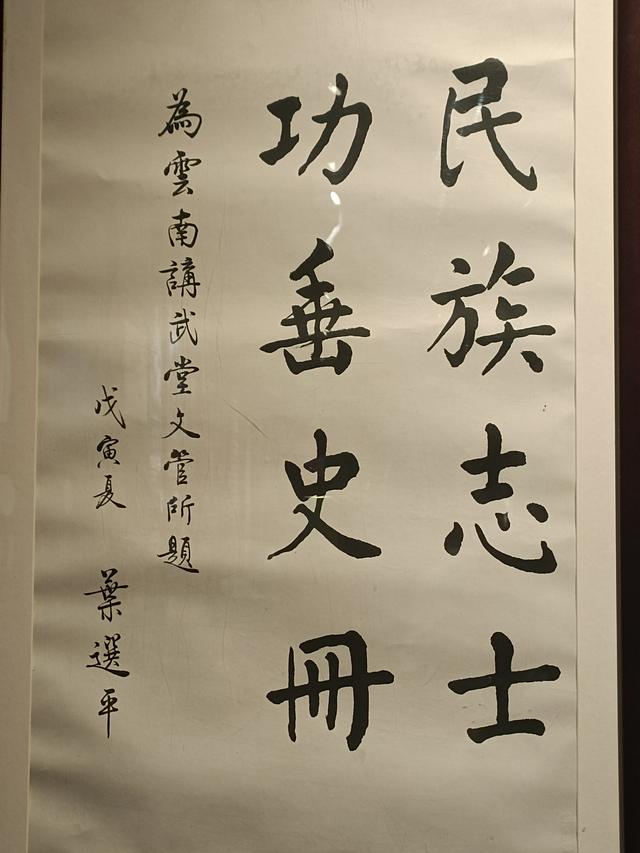 民族志士
功垂史冊
為雲南講武堂文管所題
戊寅夏 葉選平